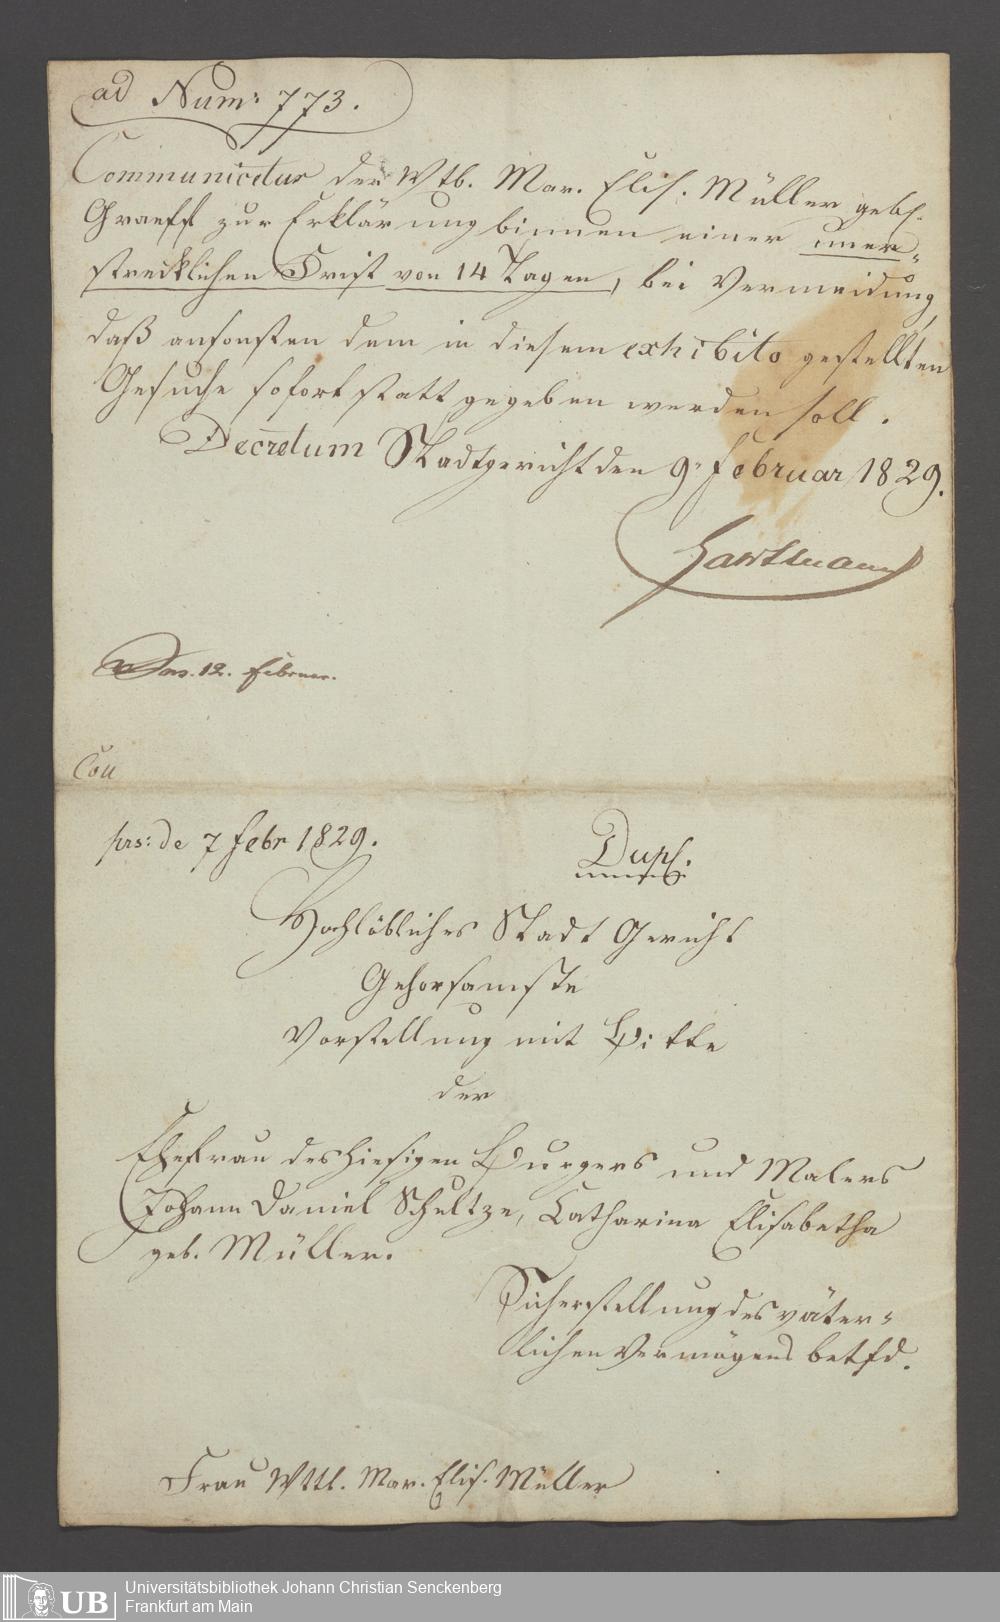 ad Num: 773.
Communicetur der Wtb. Mar. Elis. Müller gebh.
Graeff zur Erklärung binnen einer uner=
strecklichen Frist von 14 Tagen, bei Vermeidung,
daß ansonsten dem in diesem exhibito gestellten
Gesuche sofort statt gegeben werden soll.
Decretum Stadtgericht den 9. Februar 1829.
Hartmann
12. Februar.
prs: de 7 Febr 1829.
Dupl.
Hochlöbliches Stadt Gericht
Gehorsamste
Vorstellung mit Bitte
der
Ehefrau des hiesigen Burgers und Malers
Johann Daniel Schultze, Catharina Elisabetha
geb. Müller.
Sicherstellung des väter=
lichen Vermögens betfd.
Frau Wttl. Mar. Elis. Müller
UB
Universitätsbibliothek Johann Christian Senckenberg
Frankfurt am Main